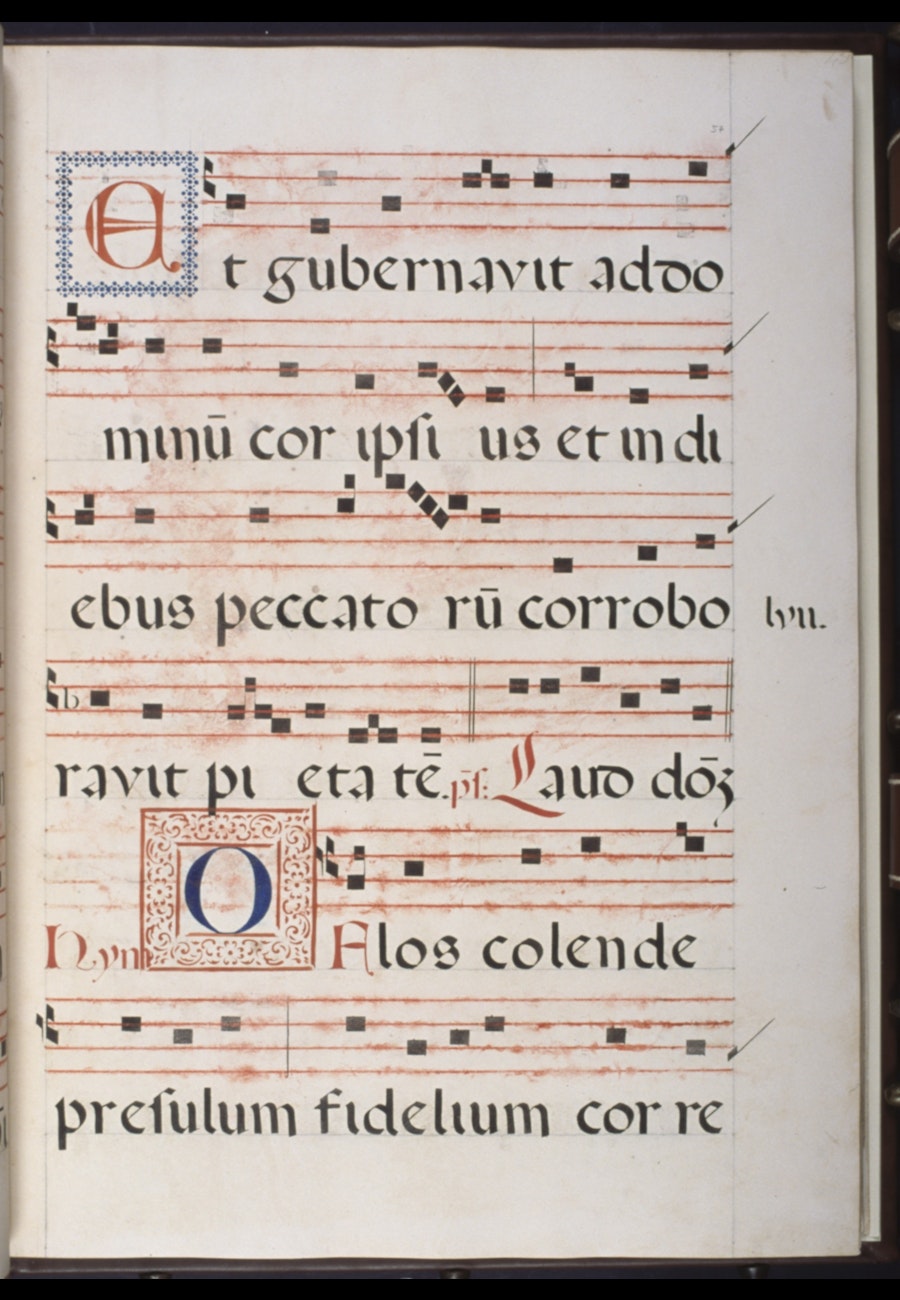 57
Et gubernavit addo
minū cor ipſi us et in di
ebus peccato rū corrobo
lvii.
ravit pi eta tē. pſ: Laud dōꝫ
Hym OFlos colende
preſulum fidelium cor re